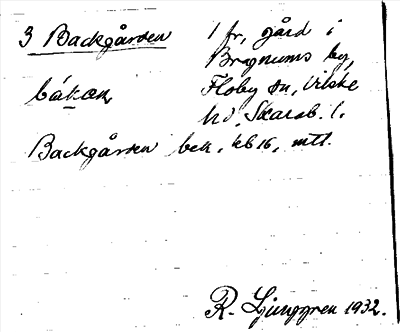 3 Backgården 1 fr, gård i
Bragnums by,
båkæn Floby sn, Vilske
hd, Skarab. l.
Backgården bek. kb 16, mtl.
R. Ljunggren 1932.